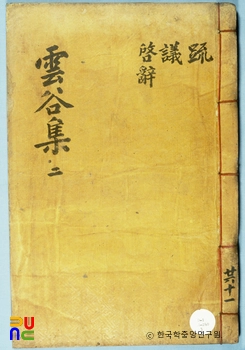 疏
議
啓辭
雲谷集 二
共十一
ⓒ 한국학중앙연구원